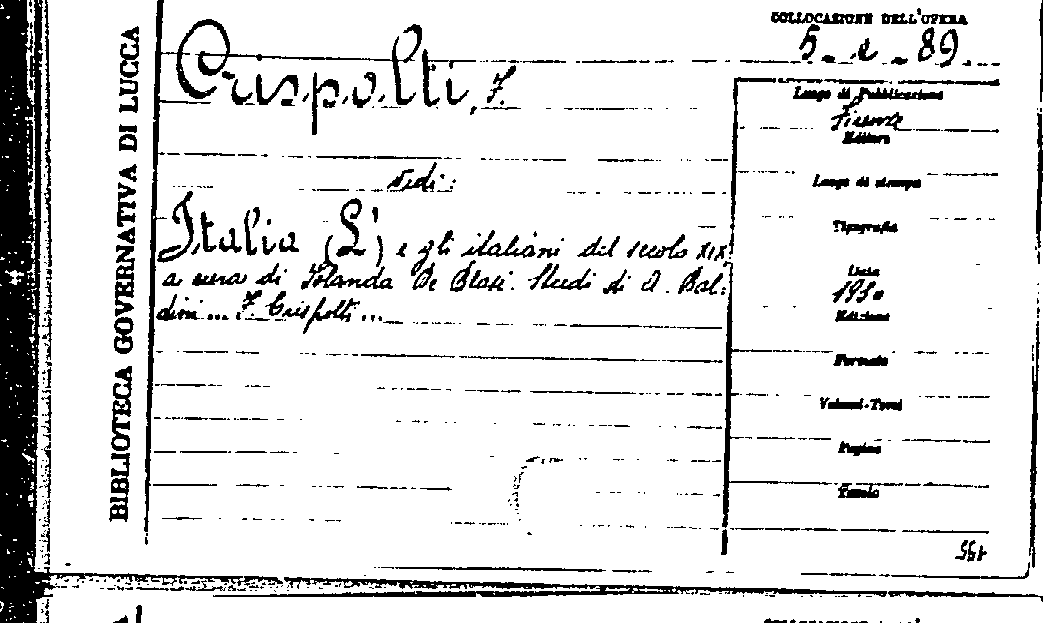 COLLOCAZIONE DELL'OPERA
5. e. 89.
BIBLIOTECA GOVERNATIVA DI LUCCA
Crispolti, F.
vedi:
Italia (L') e gli italiani del secolo XIX
a cura di Jolanda De Blasi. Studi di A. Bal-
dini... F. Crispolti...
Luogo di Pubblicazione
Firenze
Editore
Luogo di stampa
Tipografia
Data
1930
Edizione
Formato
Volumi-Tomi
Pagine
Tavole